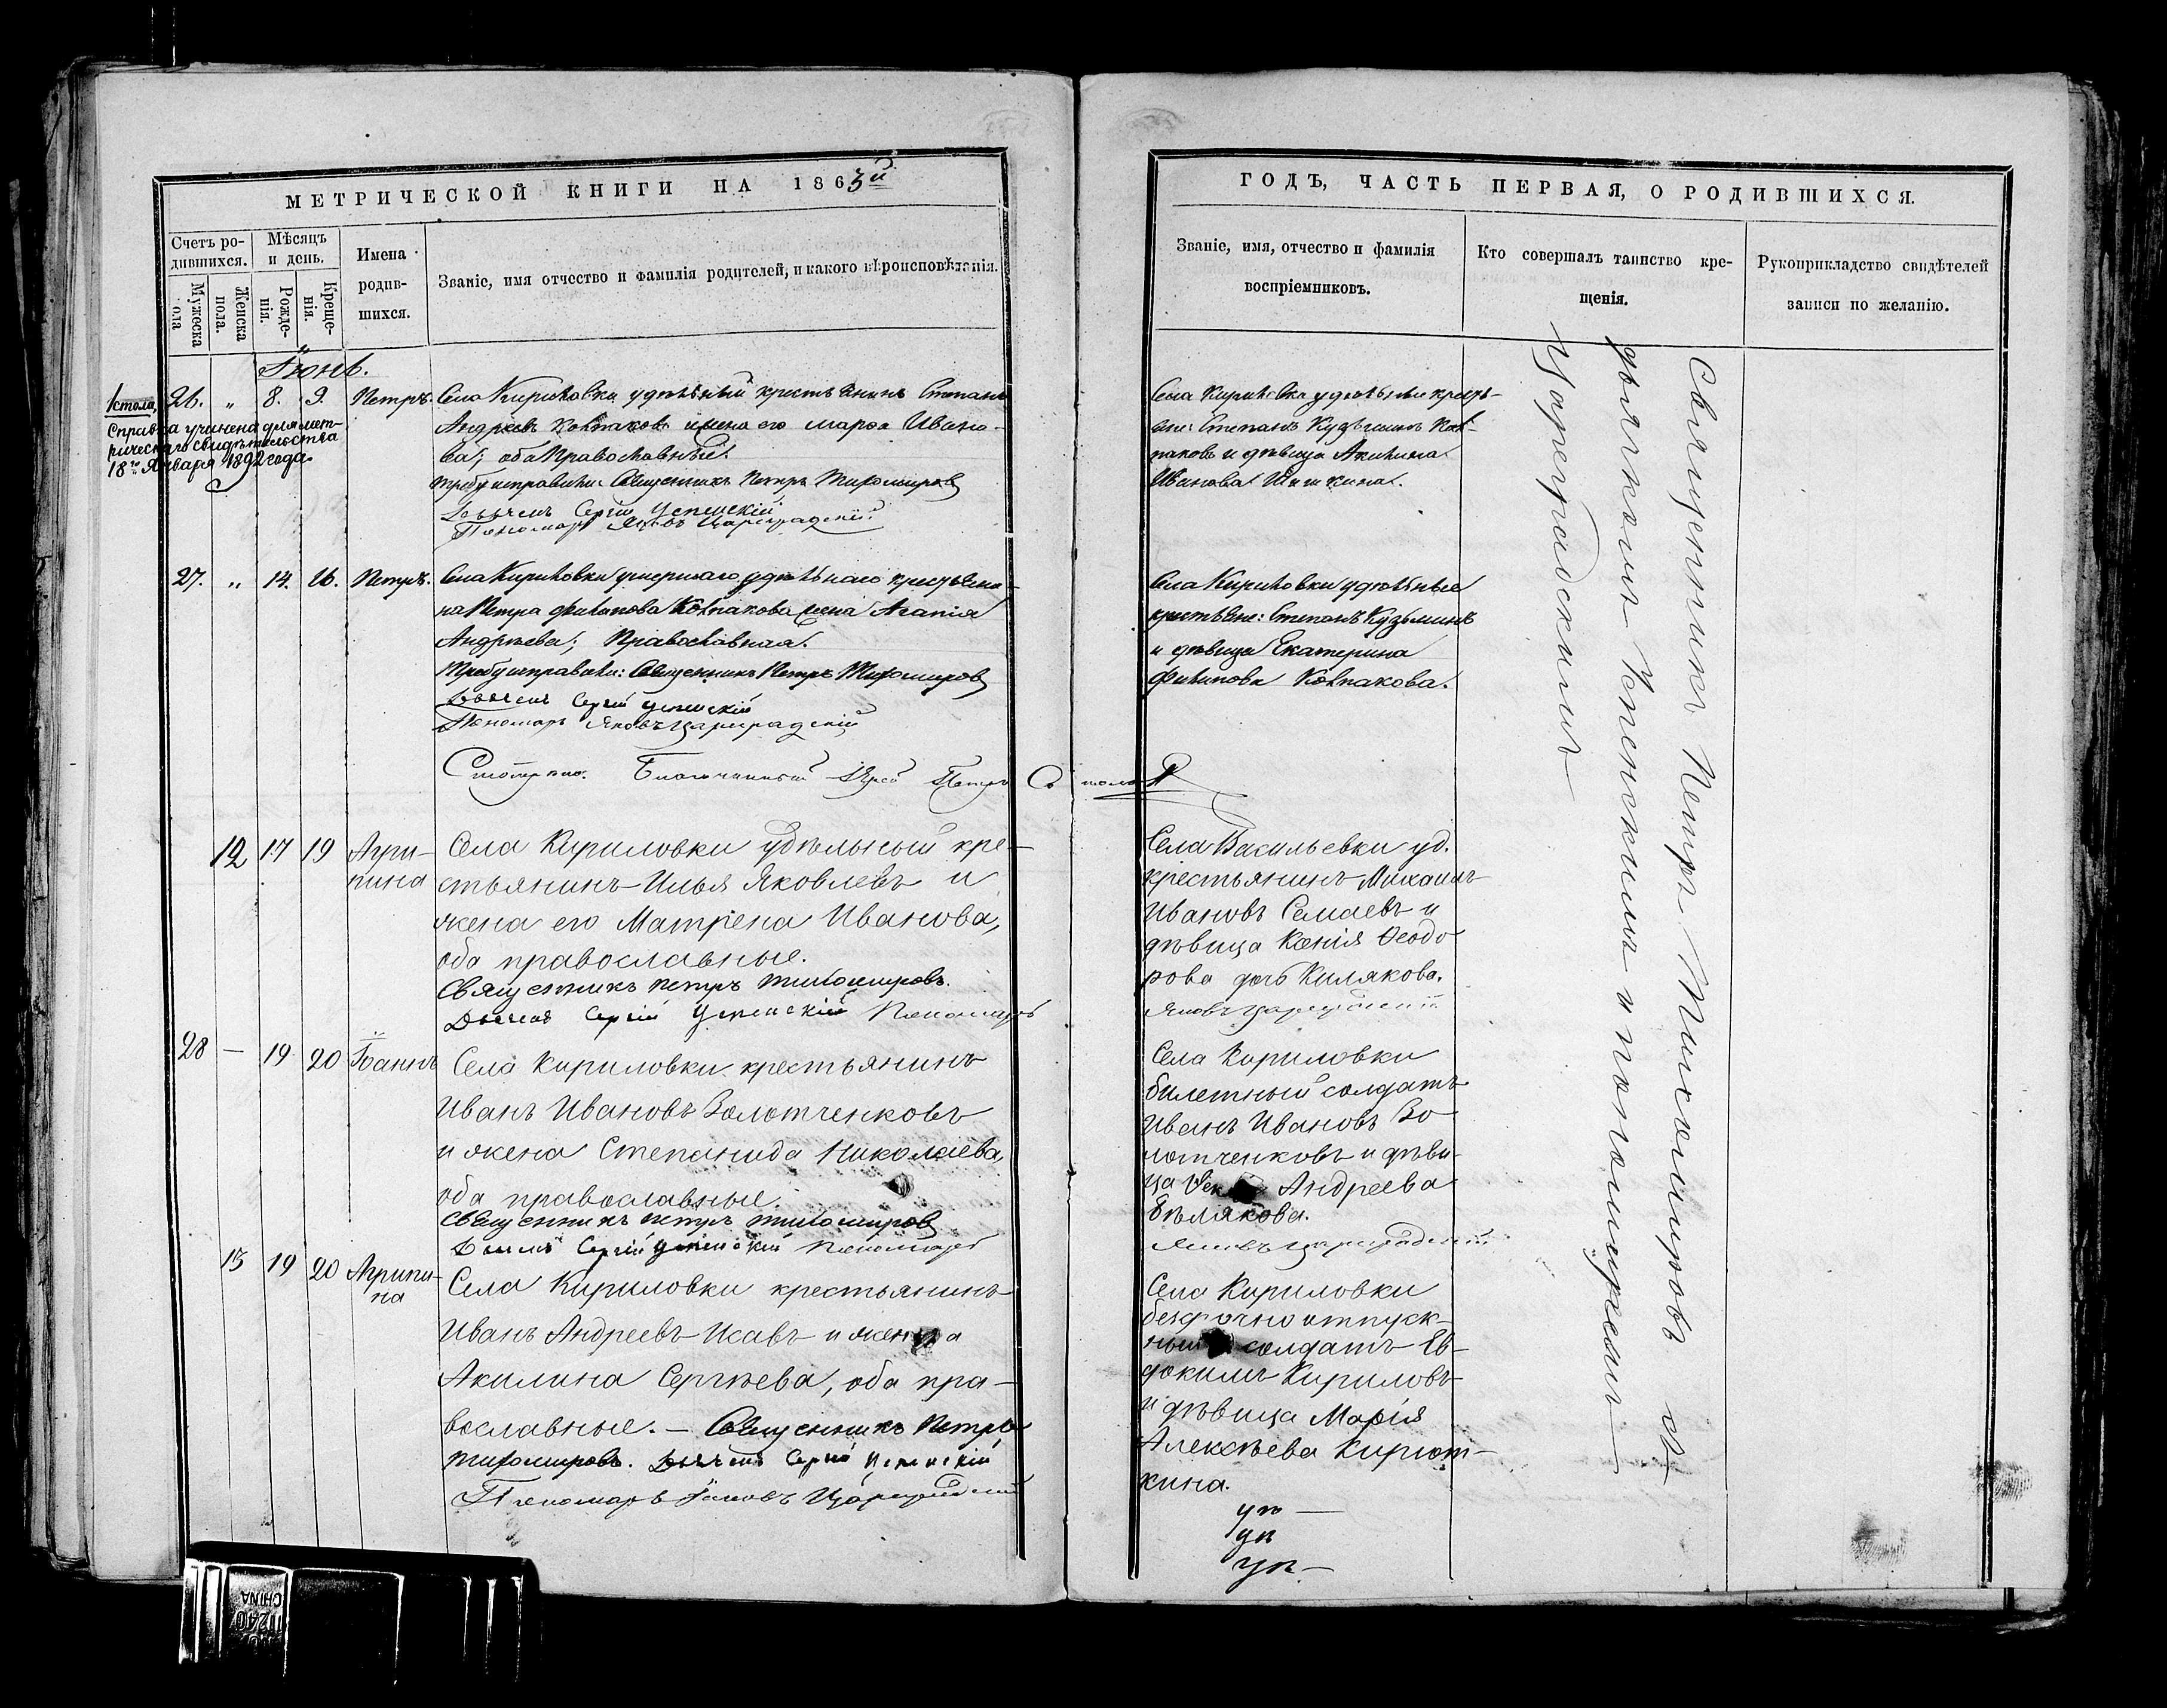 МЕТРИЧЕСКОЙ КНИГИ НА 1863й
Счетъ ро-
дившихся.
Мужеска
пола
Женска
пола.
Мѣсяцъ
и день.
Рожде-
нія.
Креще-
нія.
Имена
родив-
шихся.
Званіе, имя отчество и фамилія родителей, и какого вѣроисповѣданія.
Іюнь.
1 стола,
Справка учинена для мет-
рическаго свидѣтельства
18го Января 1892 года.
26. „ 8. 9. Петръ.
Села Кириловки удѣльный крестьянинъ Степанъ
Андреевъ Колпаковъ и жена его Марѳа Ивано-
ва; оба Православные.
Требу исправили: Священникъ Петръ Тихомировъ
Дьячекъ Сергій Успенскій
Пономарь Яковъ Цареградскій
27. „ 14. 16. Петръ.
Села Кириловки умершаго удѣльнаго крестьяни-
на Петра Филипова Колпакова жена Агапія
Андрѣева; Православная.
Требу исправили: Священникъ Петръ Тихомировъ
Дьячекъ Сергій Успенскій
Пономарь Яковъ Цареградскій
Смотрено. Благочинный Іерей Петръ
12 17 19 Агри-
пина
Села Кириловки удѣльный кре-
стьянинъ Илья Яковлевъ и
жена его Матрена Иванова,
оба православные.
Священникъ Петръ Тихомировъ.
Дьячекъ Сергій Успенскій Пономарь
28 — 19 20 Іоаннъ
Села Кириловки крестьянинъ
Иванъ Ивановъ Золотченковъ
и жена Степанида Николаева,
оба православные.
Священникъ Петръ Тихомировъ
Дьячекъ Сергій Успенскій Пономарь
13 19 20 Агрипи-
на
Села Кириловки крестьянинъ
Иванъ Андреевъ Исавъ и жена
Акилина Сергѣева, оба пра-
вославные. — Священникъ Петръ
Тихомировъ. Дьячекъ Сергій Успенскій
Пономарь Яковъ Цареградскій
ГОДЪ, ЧАСТЬ ПЕРВАЯ, О РОДИВШИХСЯ.
Званіе, имя, отчество и фамилія
воспріемниковъ.
Кто совершалъ таинство кре-
щенія.
Рукоприкладство свидѣтелей
записи по желанію.
Села Кириловки удѣльные кресть-
яне: Степанъ Кузьминъ Кол-
паковъ и дѣвица Акилина
Иванова Шишкина.
Села Кириловки удѣльные
крестьяне: Степанъ Кузьминъ
и дѣвица Екатерина
Филипова Колпакова.
Села Васильевки уд.
крестьянинъ Михаилъ
Ивановъ Семаевъ и
дѣвица Ксенія Ѳеодо-
рова дочь Килякова.
Яковъ Цареградскій
Села Кириловки
билетный солдатъ
Иванъ Ивановъ Зо-
лотченковъ и дѣви-
ца Андреева
Бѣлякова.
Яковъ Цареградскій
Села Кириловки
безсрочно отпуск-
ный солдатъ Ев-
докимъ Кириловъ
и дѣвица Марія
Алексѣева Кирют-
кина.
Священникъ Петръ Тихомировъ съ
дьячкомъ Успенскимъ и пономаремъ
Цареградскимъ